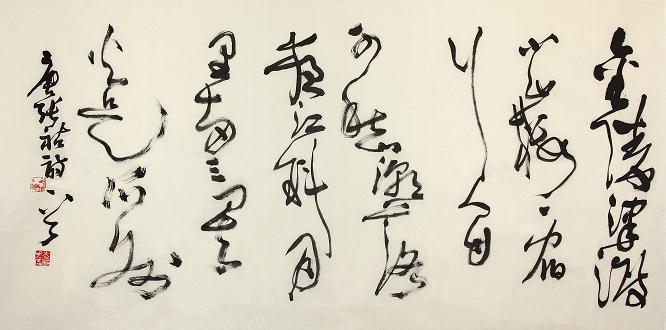 金陵津渡
小山樓一宿
行人自
可愁潮落
夜江斜月
里兩三星
火是瓜洲
唐張祜詩